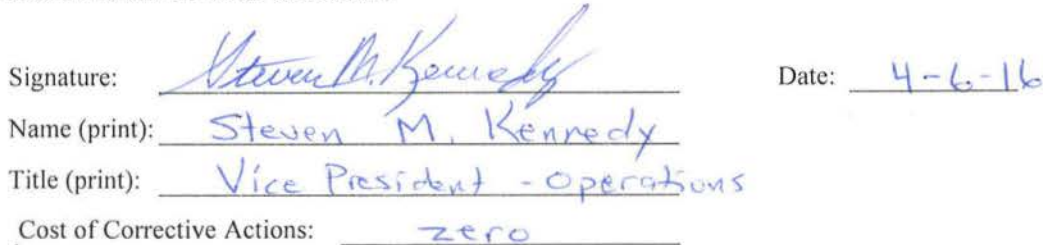 Signature: Steven M. Kennedy Date: 4-6-16
Name (print): Steven M. Kennedy
Title (print): Vice President - Operations
Cost of Corrective Actions: zero